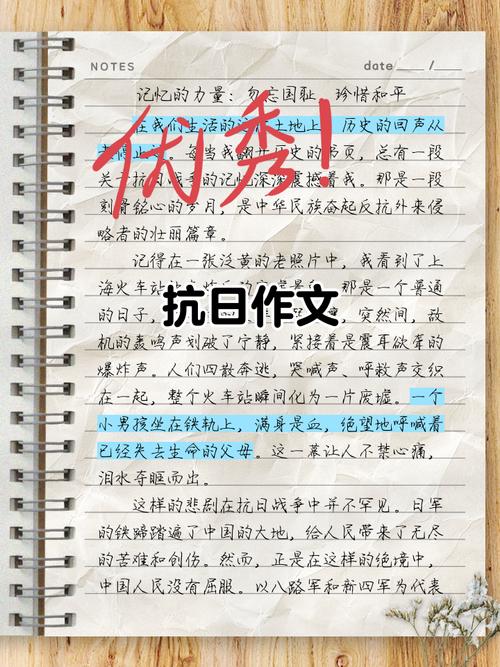 NOTES
date / 
记忆的力量：勿忘国耻 珍惜和平
优秀！
在我们生活的这片土地上，历史的回声从
停止过。每当我翻开历史的书页，总有一段
关于抗日战争的记忆深深震撼着我。那是一段
刻骨铭心的岁月，是中华民族奋起反抗外来侵
略者的壮丽篇章。
记得在一张泛黄的老照片中，我看到了上
海火车站 那是一个普通
抗日作文
的日子， 突然间，敌
机的轰鸣声划破了宁静，紧接着是震耳欲聋的
爆炸声。人们四散奔逃，哭喊声、呼救声交织
在一起，整个火车站瞬间化为一片废墟。一个
小男孩坐在铁轨上，满身是血，绝望地呼喊着
已经失去生命的父母。这一幕让人不禁心痛，
泪水夺眶而出。
这样的悲剧在抗日战争中并不罕见。日军
的铁蹄踏遍了中国的大地，给人民带来了无尽
的苦难和创伤。然而，正是在这样的绝境中，
中国人民没有屈服。以八路军和新四军为代表